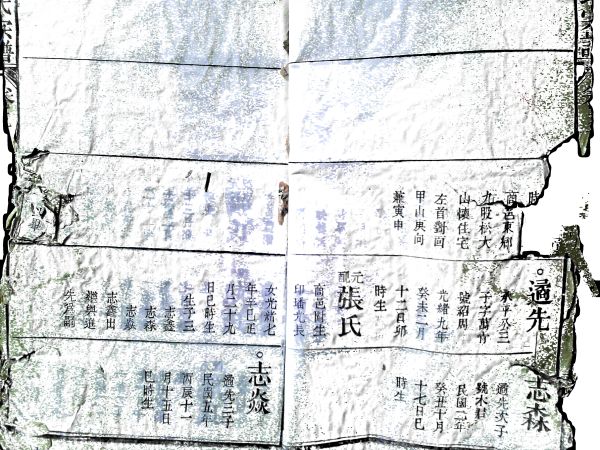 氏宗譜
商邑東鄉
九股松大
山懷住宅
左首對面
甲山庚向
兼寅申
時
適先
永平公三
子字萬竹
號紹周
光緒九年
癸未二月
十二日卯
時生
元配
張氏
商邑附生
女光緒七
年辛巳正
月二十九
日巳時生
生子三
志鑫
志森
志焱
志鑫出
繼與進
先為嗣
志森
適先次子
號木村
民國二年
癸丑十月
十七日巳
時生
志焱
適先三子
民國五年
丙辰十一
月十五日
巳時生